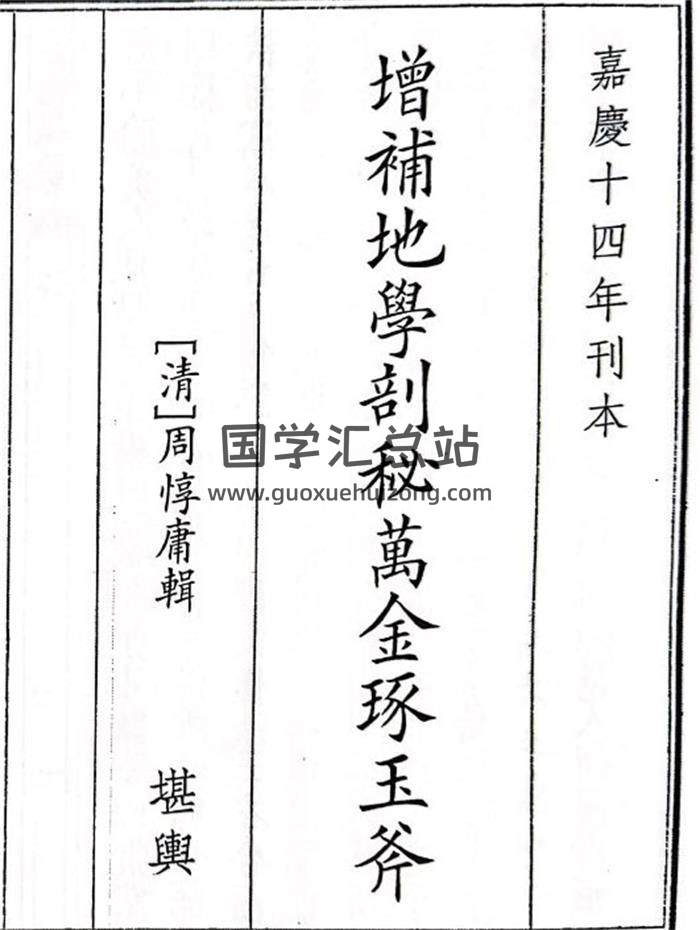 嘉慶十四年刊本
增補地學剖秘萬金琢玉斧
[清]周惇庸輯
堪輿
国学汇总站
www.guoxuehuizong.com